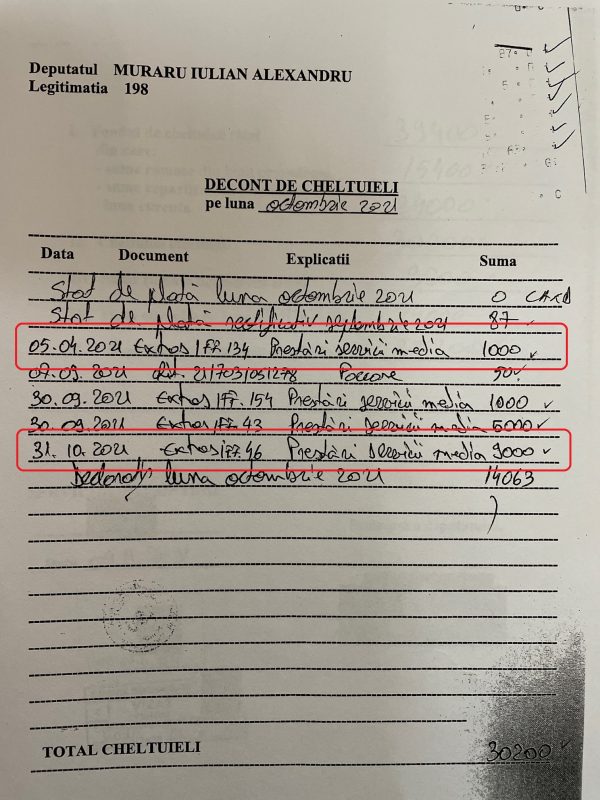 Deputatul MURARU IULIAN ALEXANDRU
Legitimatia 198
DECONT DE CHELTUIELI
pe luna octombrie 2021
Data Document Explicatii Suma
Stat de plată luna octombrie 2021 0 CARD
Stat de plată rectificativ septembrie 2021 87
05.04.2021 Extras/FF.134 Prestări servicii media 1000
07.09.2021 21/703/051278 50
30.09.2021 Extras/FF.154 Prestări servicii media 1000
30.09.2021 Extras/FF.43 Prestări servicii media 5000
31.10.2021 Extras/FF.46 Prestări servicii media 9000
luna octombrie 2021 14063
TOTAL CHELTUIELI 30200